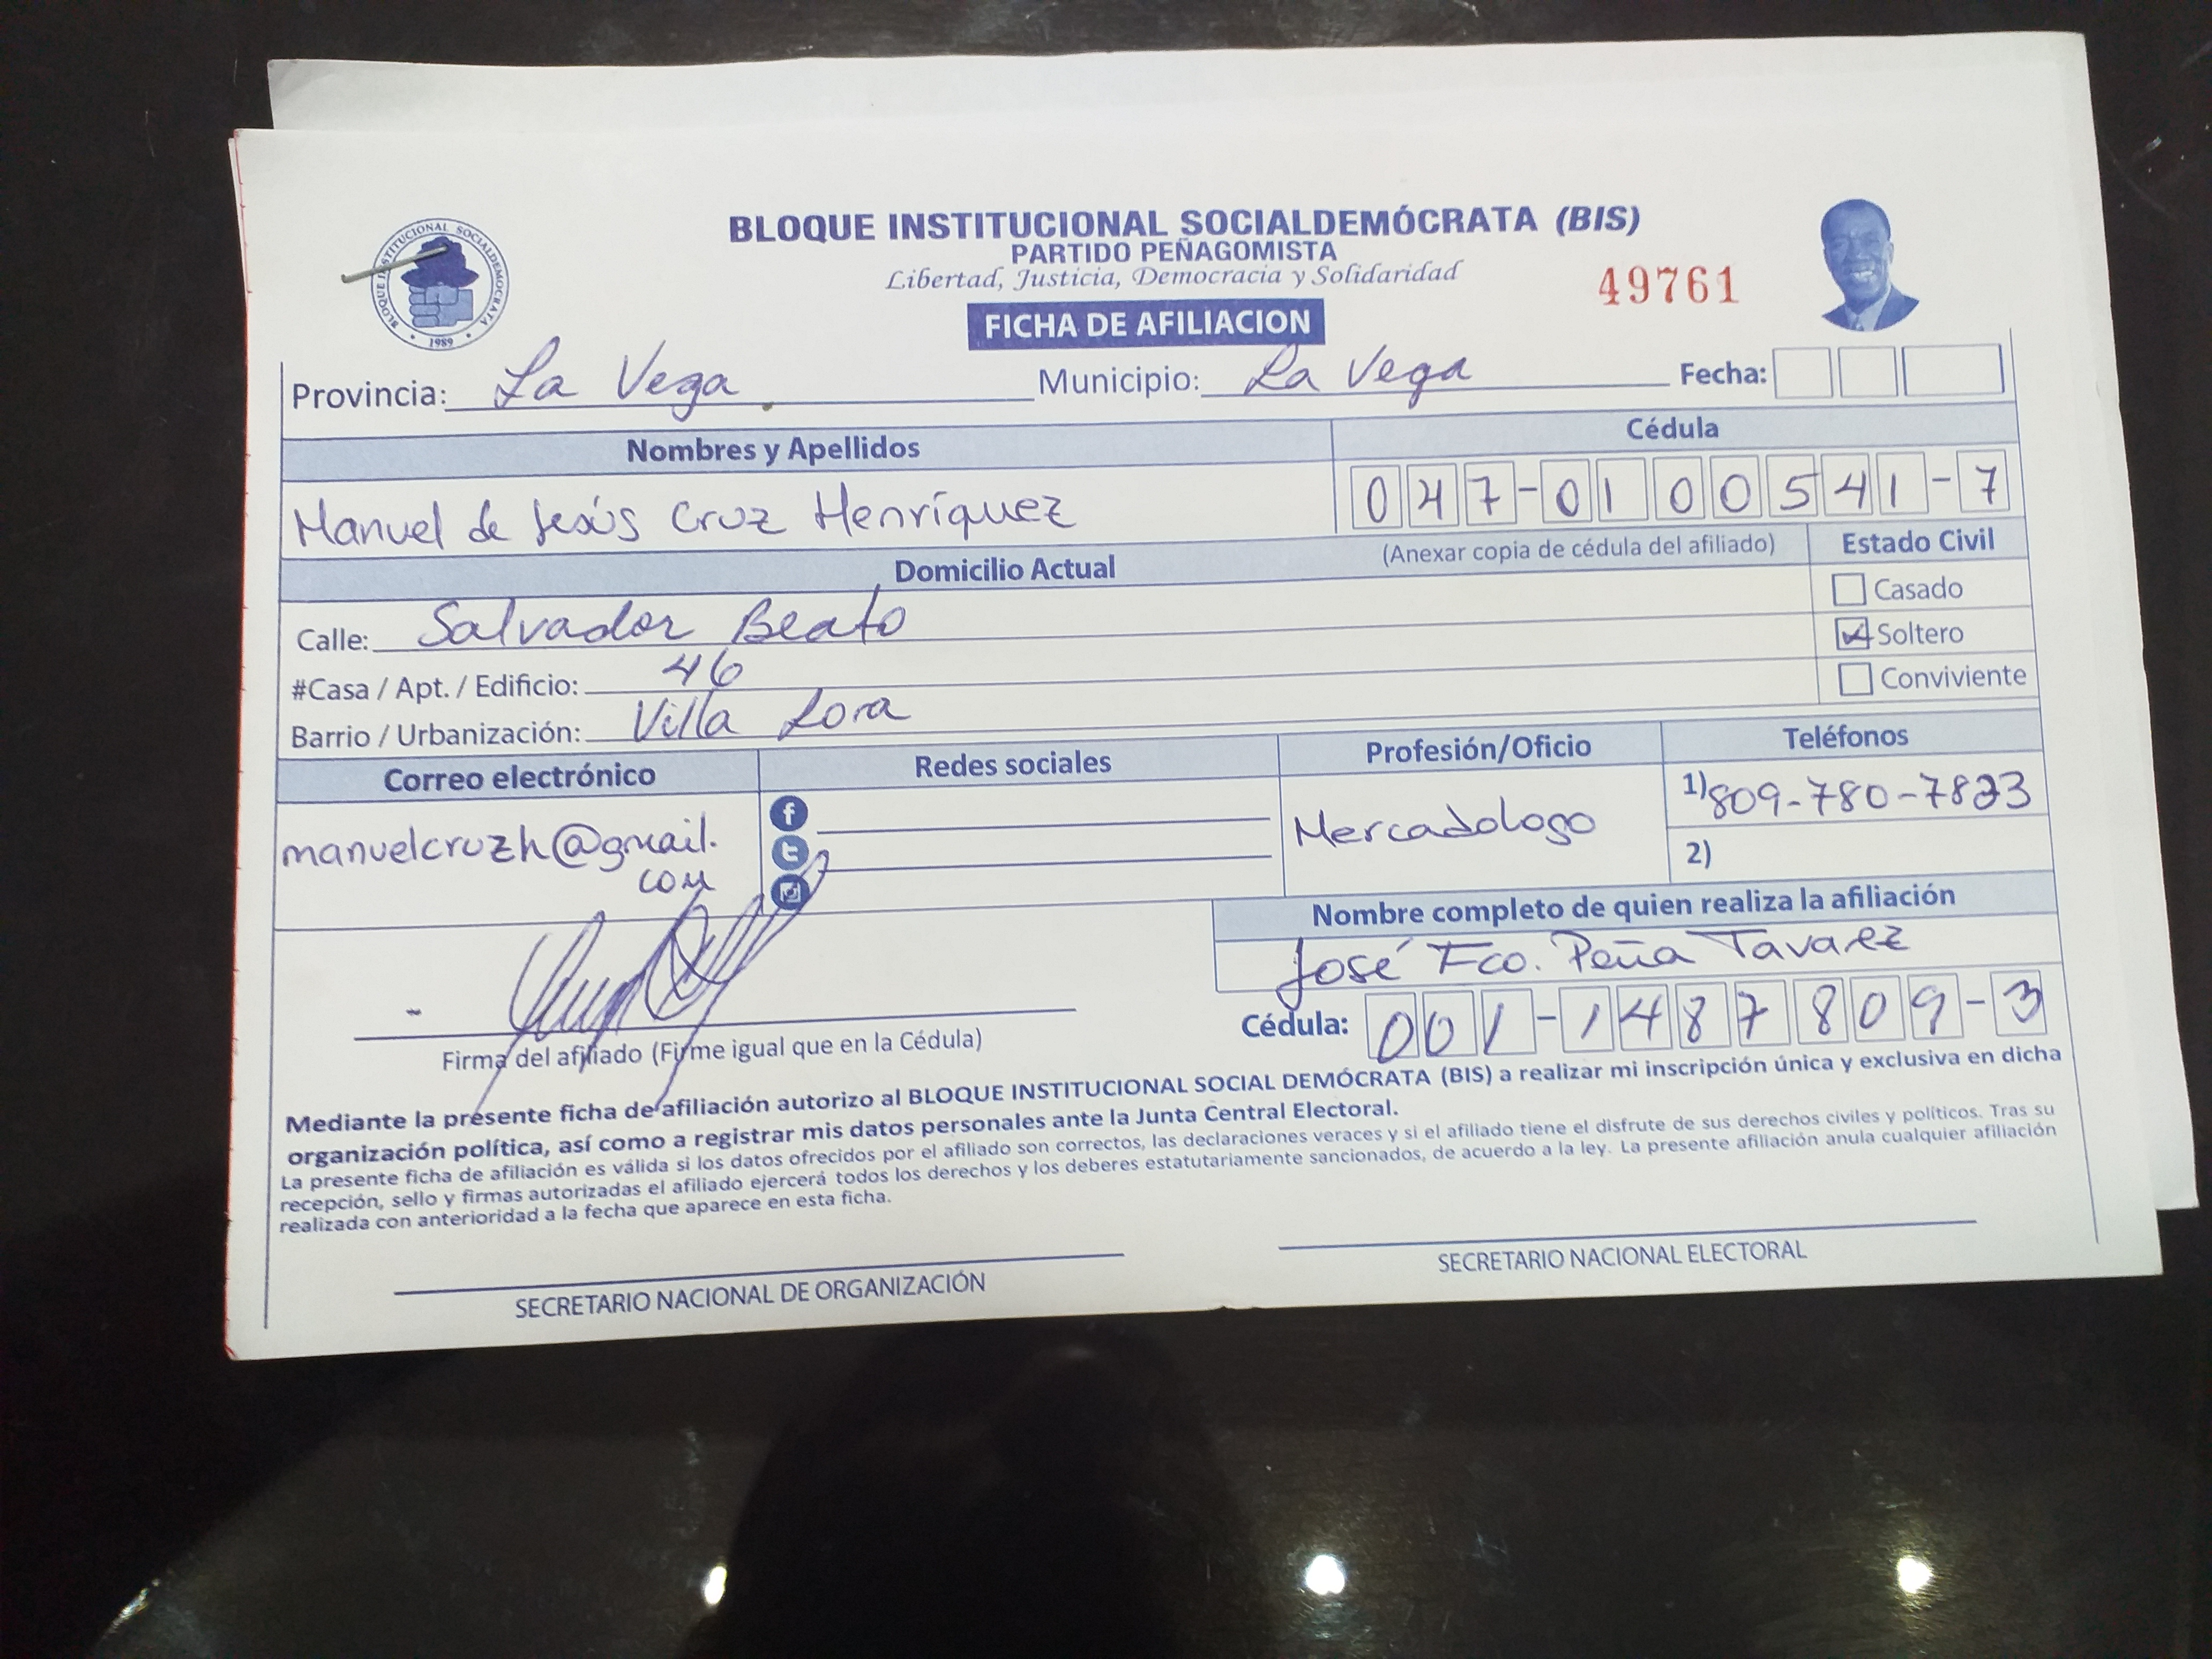 BLOQUE INSTITUCIONAL SOCIALDEMÓCRATA (BIS)
PARTIDO PEÑAGOMISTA
Libertad, Justicia, Democracia y Solidaridad
49761
BLOQUE INSTITUCIONAL SOCIALDEMOCRATA
1989
FICHA DE AFILIACION
Provincia: La Vega Municipio: La Vega Fecha:
Nombres y Apellidos Cédula
Manuel de Jesús Cruz Henríquez 047-0100541-7
Domicilio Actual (Anexar copia de cédula del afiliado) Estado Civil
Casado
Calle: Salvador Beato Soltero
#Casa / Apt. / Edificio: 46 Conviviente
Barrio / Urbanización: Villa Lora
Correo electrónico Redes sociales Profesión/Oficio Teléfonos
manuelcruzh@gmail. Mercadologo 1) 809-780-7823
com 2)
Nombre completo de quien realiza la afiliación
José Fco. Peña Tavarez
Cédula: 001-1487809-3
Firma del afiliado (Firme igual que en la Cédula)
Mediante la presente ficha de afiliación autorizo al BLOQUE INSTITUCIONAL SOCIAL DEMÓCRATA (BIS) a realizar mi inscripción única y exclusiva en dicha
organización política, así como a registrar mis datos personales ante la Junta Central Electoral.
La presente ficha de afiliación es válida si los datos ofrecidos por el afiliado son correctos, las declaraciones veraces y si el afiliado tiene el disfrute de sus derechos civiles y políticos. Tras su
recepción, sello y firmas autorizadas el afiliado ejercerá todos los derechos y los deberes estatutariamente sancionados, de acuerdo a la ley. La presente afiliación anula cualquier afiliación
realizada con anterioridad a la fecha que aparece en esta ficha.
SECRETARIO NACIONAL DE ORGANIZACIÓN SECRETARIO NACIONAL ELECTORAL